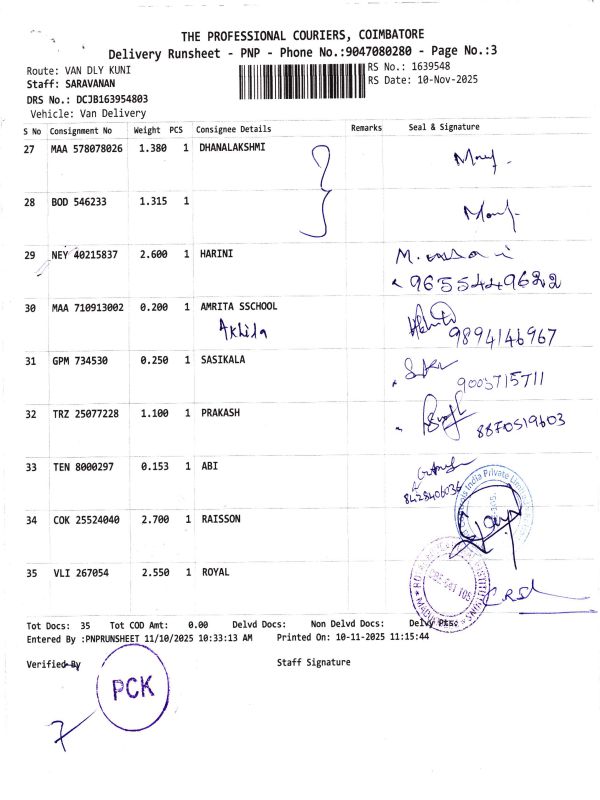 THE PROFESSIONAL COURIERS, COIMBATORE
Delivery Runsheet - PNP - Phone No.:9047080280 - Page No.:3
Route: VAN DLY KUNI
RS No.: 1639548
Staff: SARAVANAN
RS Date: 10-Nov-2025
DRS No.: DCJB163954803
Vehicle: Van Delivery
S No Consignment No Weight PCS Consignee Details Remarks Seal & Signature
27 MAA 578078026 1.380 1 DHANALAKSHMI
28 BOD 546233 1.315 1
29 NEY 40215837 2.600 1 HARINI
9655449622
30 MAA 710913002 0.200 1 AMRITA SSCHOOL
Akhila
9894146967
31 GPM 734530 0.250 1 SASIKALA
9003715711
32 TRZ 25077228 1.100 1 PRAKASH
8870519603
33 TEN 8000297 0.153 1 ABI
8428406036
India Private Limited
34 COK 25524040 2.700 1 RAISSON
35 VLI 267054 2.550 1 ROYAL
Tot Docs: 35 Tot COD Amt: 0.00 Delvd Docs: Non Delvd Docs: Delvy Pts:
Entered By :PNPRUNSHEET 11/10/2025 10:33:13 AM Printed On: 10-11-2025 11:15:44
Verified By Staff Signature
PCK
7